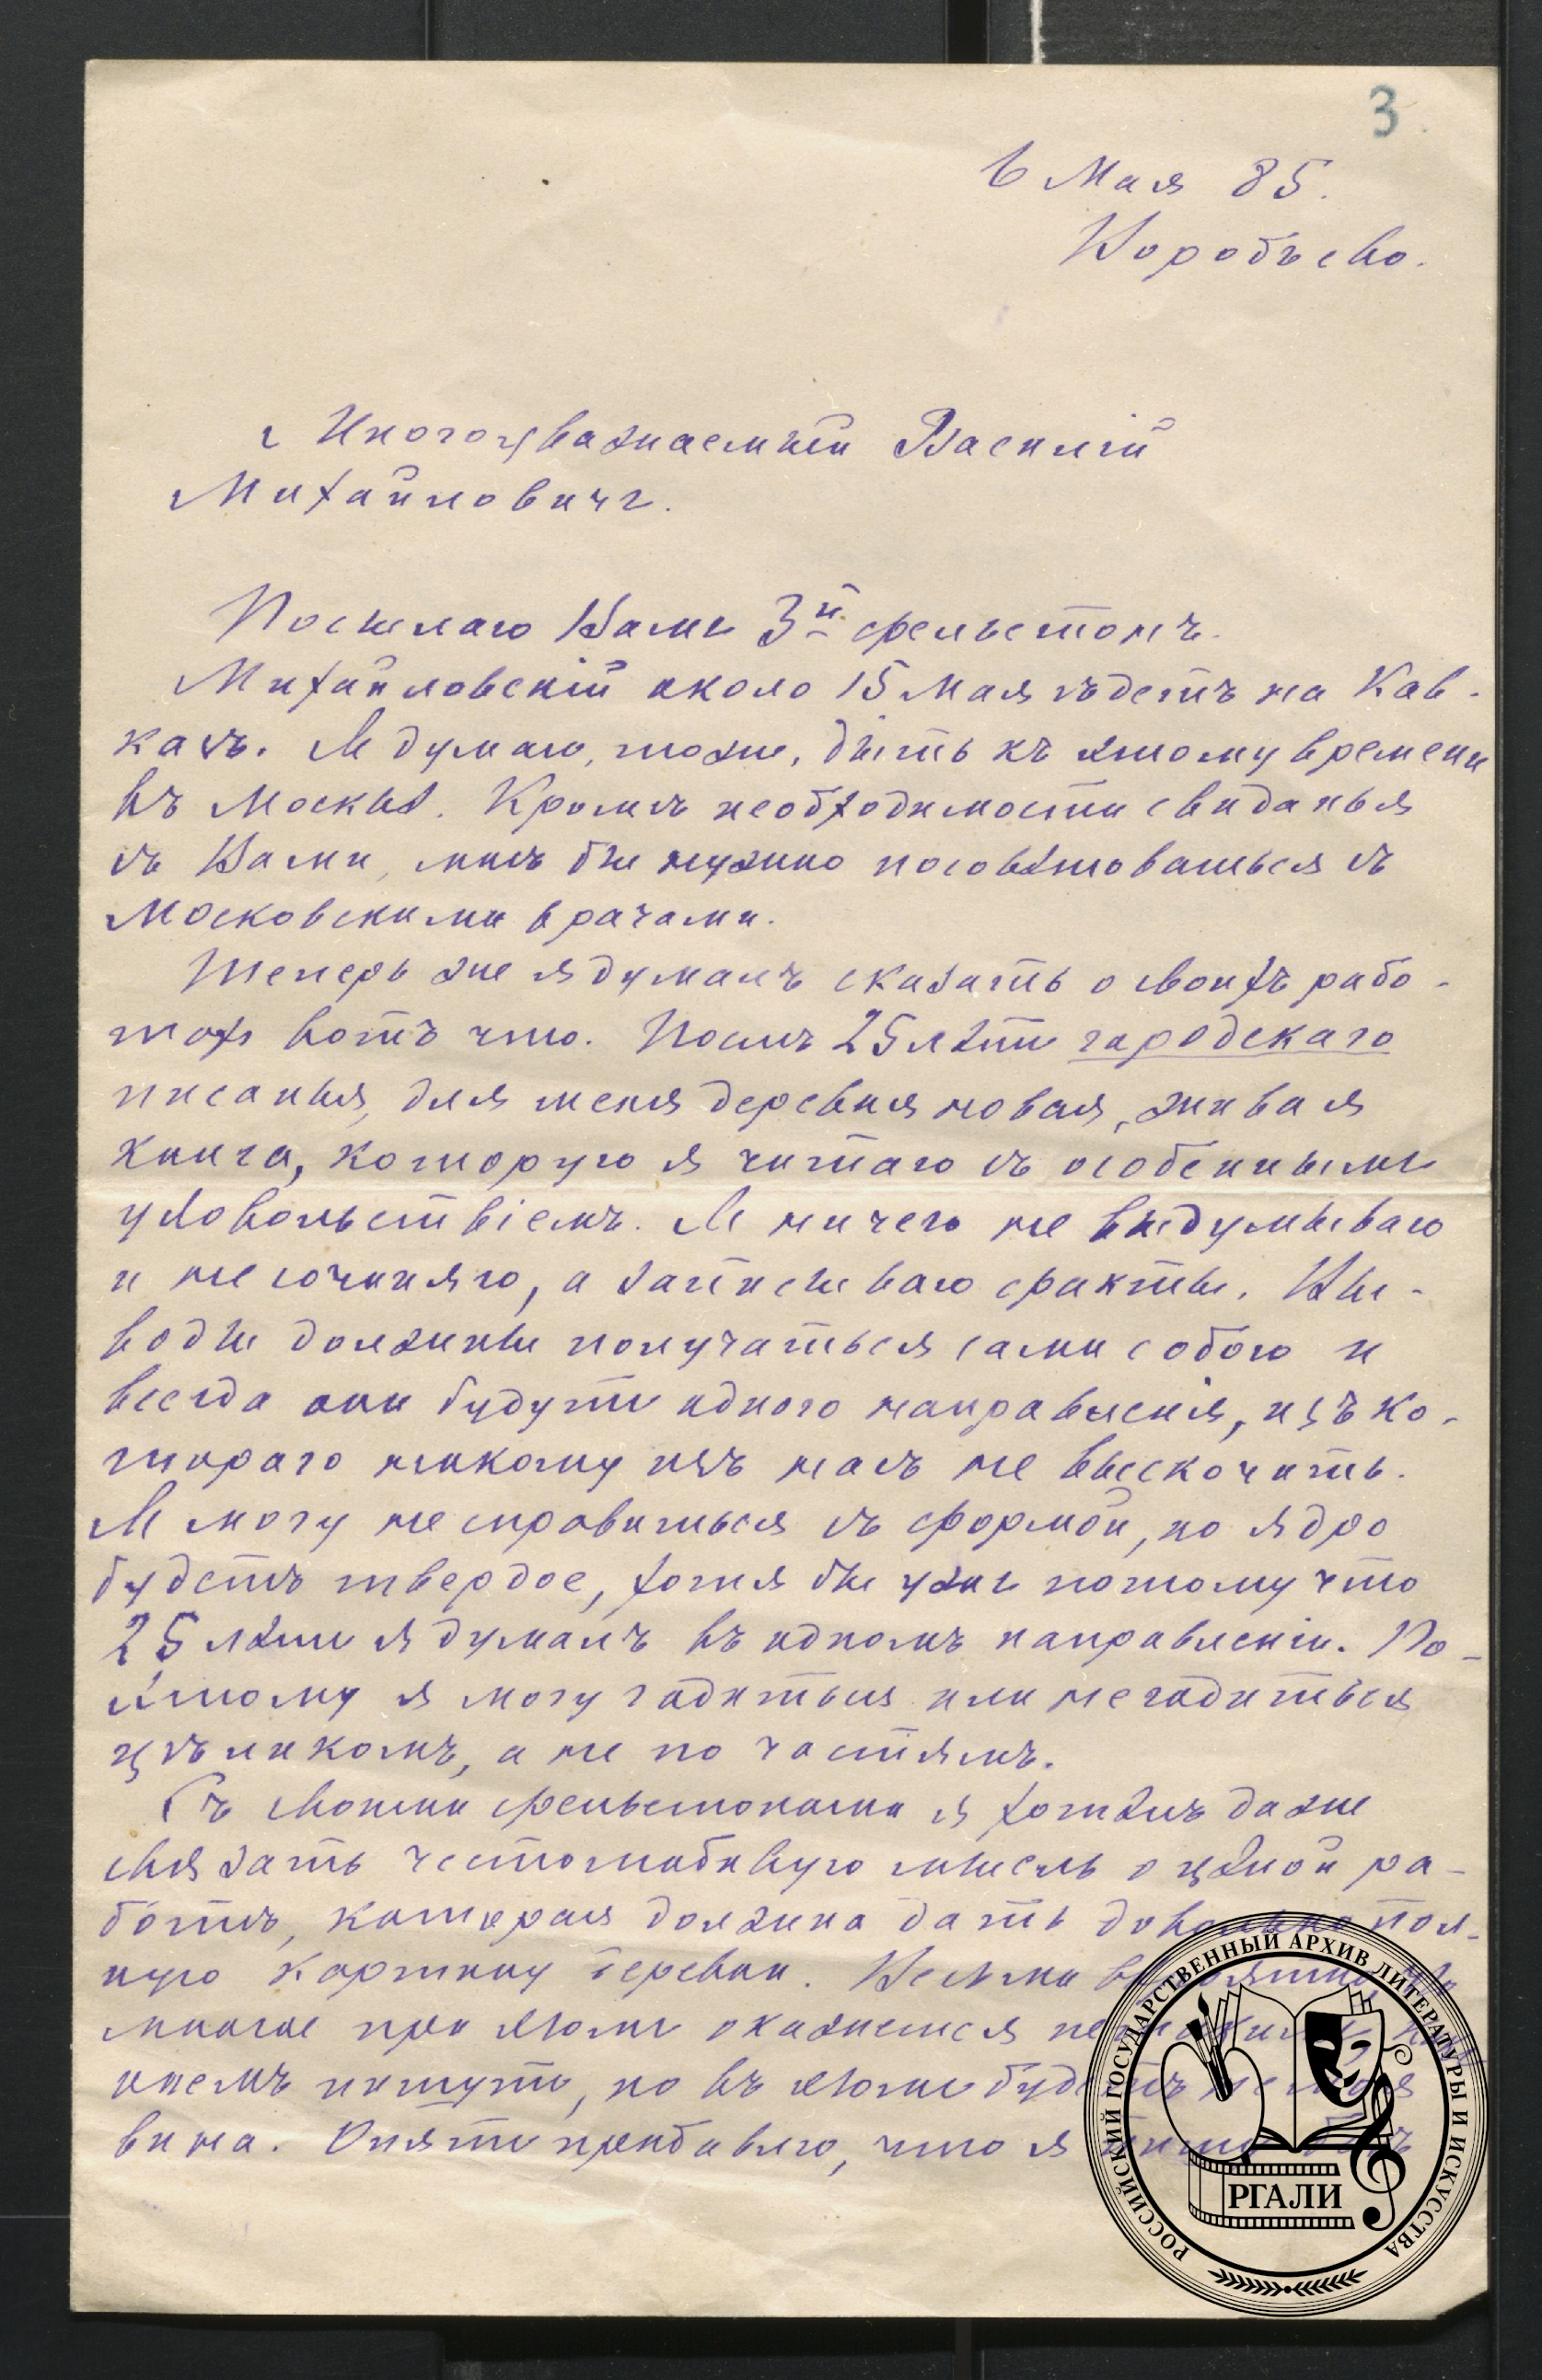 3
6 Мая 85.
Воробьево.
Многоуважаемый Василій
Михайловичъ.
Посылаю Вамъ 3й фельетонъ.
Михайловскій около 15 Мая ѣдетъ на Кав-
казъ. Я думаю, тоже, быть къ этому времени
въ Москвѣ. Кромѣ необходимости свиданья
съ Вами, мнѣ бы нужно посовѣтоваться съ
Московскими врачами.
Теперь же я думалъ сказать о своихъ рабо-
тахъ вотъ что. Послѣ 25 лѣтъ городскаго
писанья, для меня деревня новая, живая
книга, которую я читаю съ особеннымъ
удовольствіемъ. Я ничего не выдумываю
и не сочиняю, а записываю факты. Вы-
воды должны получаться сами собою и
всегда они будутъ одного направленія, изъ ко-
тораго никому изъ насъ не выскочить.
Я могу не справиться съ формой, но ядро
будетъ твердое, хотя бы уже потому что
25 лѣтъ я думалъ въ одномъ направленіи. По-
этому я могу годиться или не годиться
цѣликомъ, а не по частямъ.
Съ своими фельетонами я хотѣлъ даже
связать честолюбивую мысль о цѣлой ра-
ботѣ, которая должна дать довольно пол-
ную картину деревни. Весьма вѣроятно, что
многое при этомъ окажется не такимъ, какъ
о немъ пишутъ, но въ этомъ будетъ не моя
вина. Опять прибавлю, что я пишу
РОССИЙСКИЙ ГОСУДАРСТВЕННЫЙ АРХИВ ЛИТЕРАТУРЫ И ИСКУССТВА
РГАЛИ